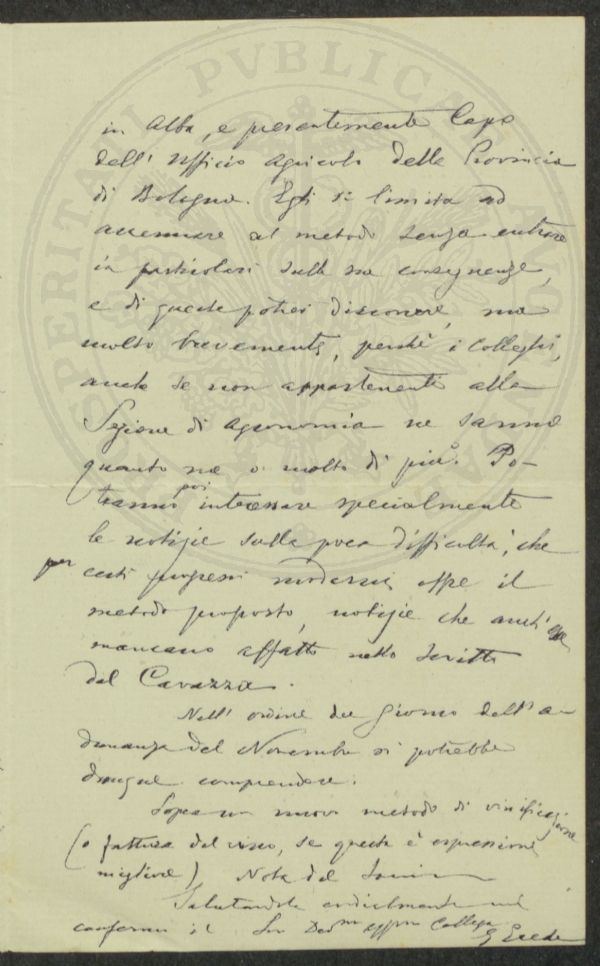 in Alba, e presentemente Capo
dell' Ufficio Agricolo della Provincia
di Bologna. Egli si limita ad
accennare al metodo senza entrare
in particolari sulle sue conseguenze,
e di queste potrei discorrere, ma
molto brevemente, perchè i Colleghi,
anche se non appartenenti alla
Sezione di Agronomia ne sanno
quanto me o molto di più. Po-
tranno poi interessare specialmente
le notizie sulla poca difficoltà, che
per certi progressi moderni, offre il
metodo proposto, notizie che anch' esse
mancano affatto nello scritto
del Cavazza.
Nell' ordine del Giorno dell' a-
dunanza del Novembre si potrebbe
dunque comprendere:
Sopra un nuovo metodo di vinificazione
(o fattura del vino, se questa è espressione
migliore) Nota del Socio
Salutandola cordialmente mi
confermo il Suo Dev.mo Collega
G